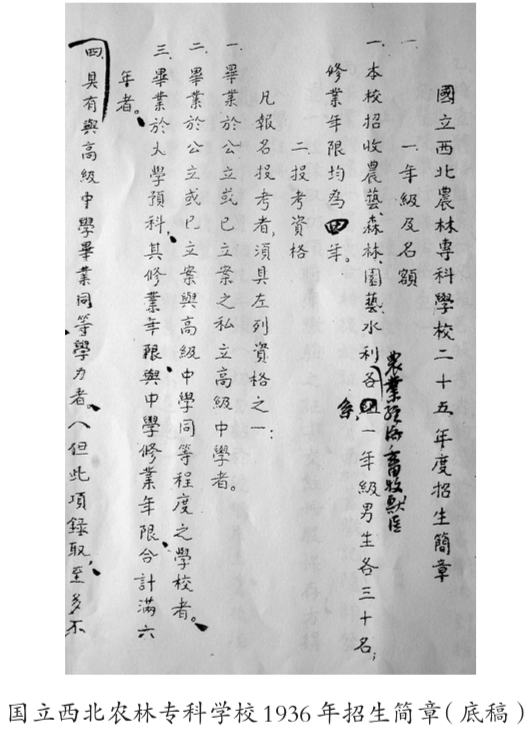 國立西北農林專科學校二十五年度招生簡章
一
一年級及名額
一、本校招收農藝、森林、園藝、水利各組一年級男生各三十名；
農業經濟畜牧獸医
系
修業年限均為四年。
二投考資格
凡報名投考者，須具左列資格之一：
一、畢業於公立或已立案之私立高級中學者。
二、畢業於公立或已立案與高級中學同等程度之學校者。
三、畢業於大學預科，其修業年限，與中學修業年限，合計滿六
年者。
四、具有與高級中學畢業同等學力者。（但此項錄取，至多不
国立西北农林专科学校1936年招生简章（底稿）